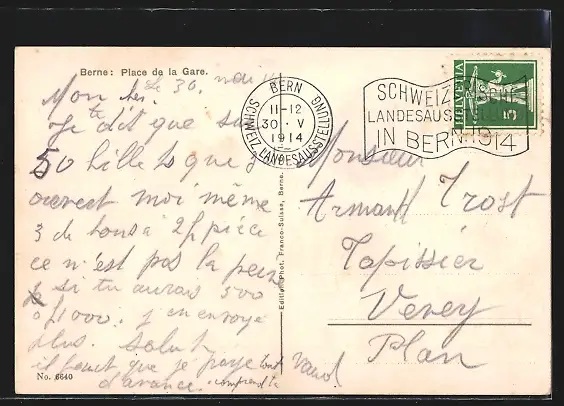 Berne: Place de la Gare.
Le 30. mai 14
Mon cher.
Je te dit que sur
50 billets que j
ouvert moi même
3 de bons à 2f pièce
ce n'est pas la peine
si tu aurais 500
o f 1000. j'en envoye
plus. Salut
il faut que je paye tout
d'avance. comprend tu
No. 6640
Edition Phot. Franco-Suisse, Berne.
BERN
11-12
30.V
1914
SCHWEIZ. LANDESAUSSTELLUNG
SCHWEIZ
LANDESAUSSTELLUNG
IN BERN 1914
HELVETIA
5
Monsieur
Armand Trost
Tapissier
Vevey
Plan
Vaud